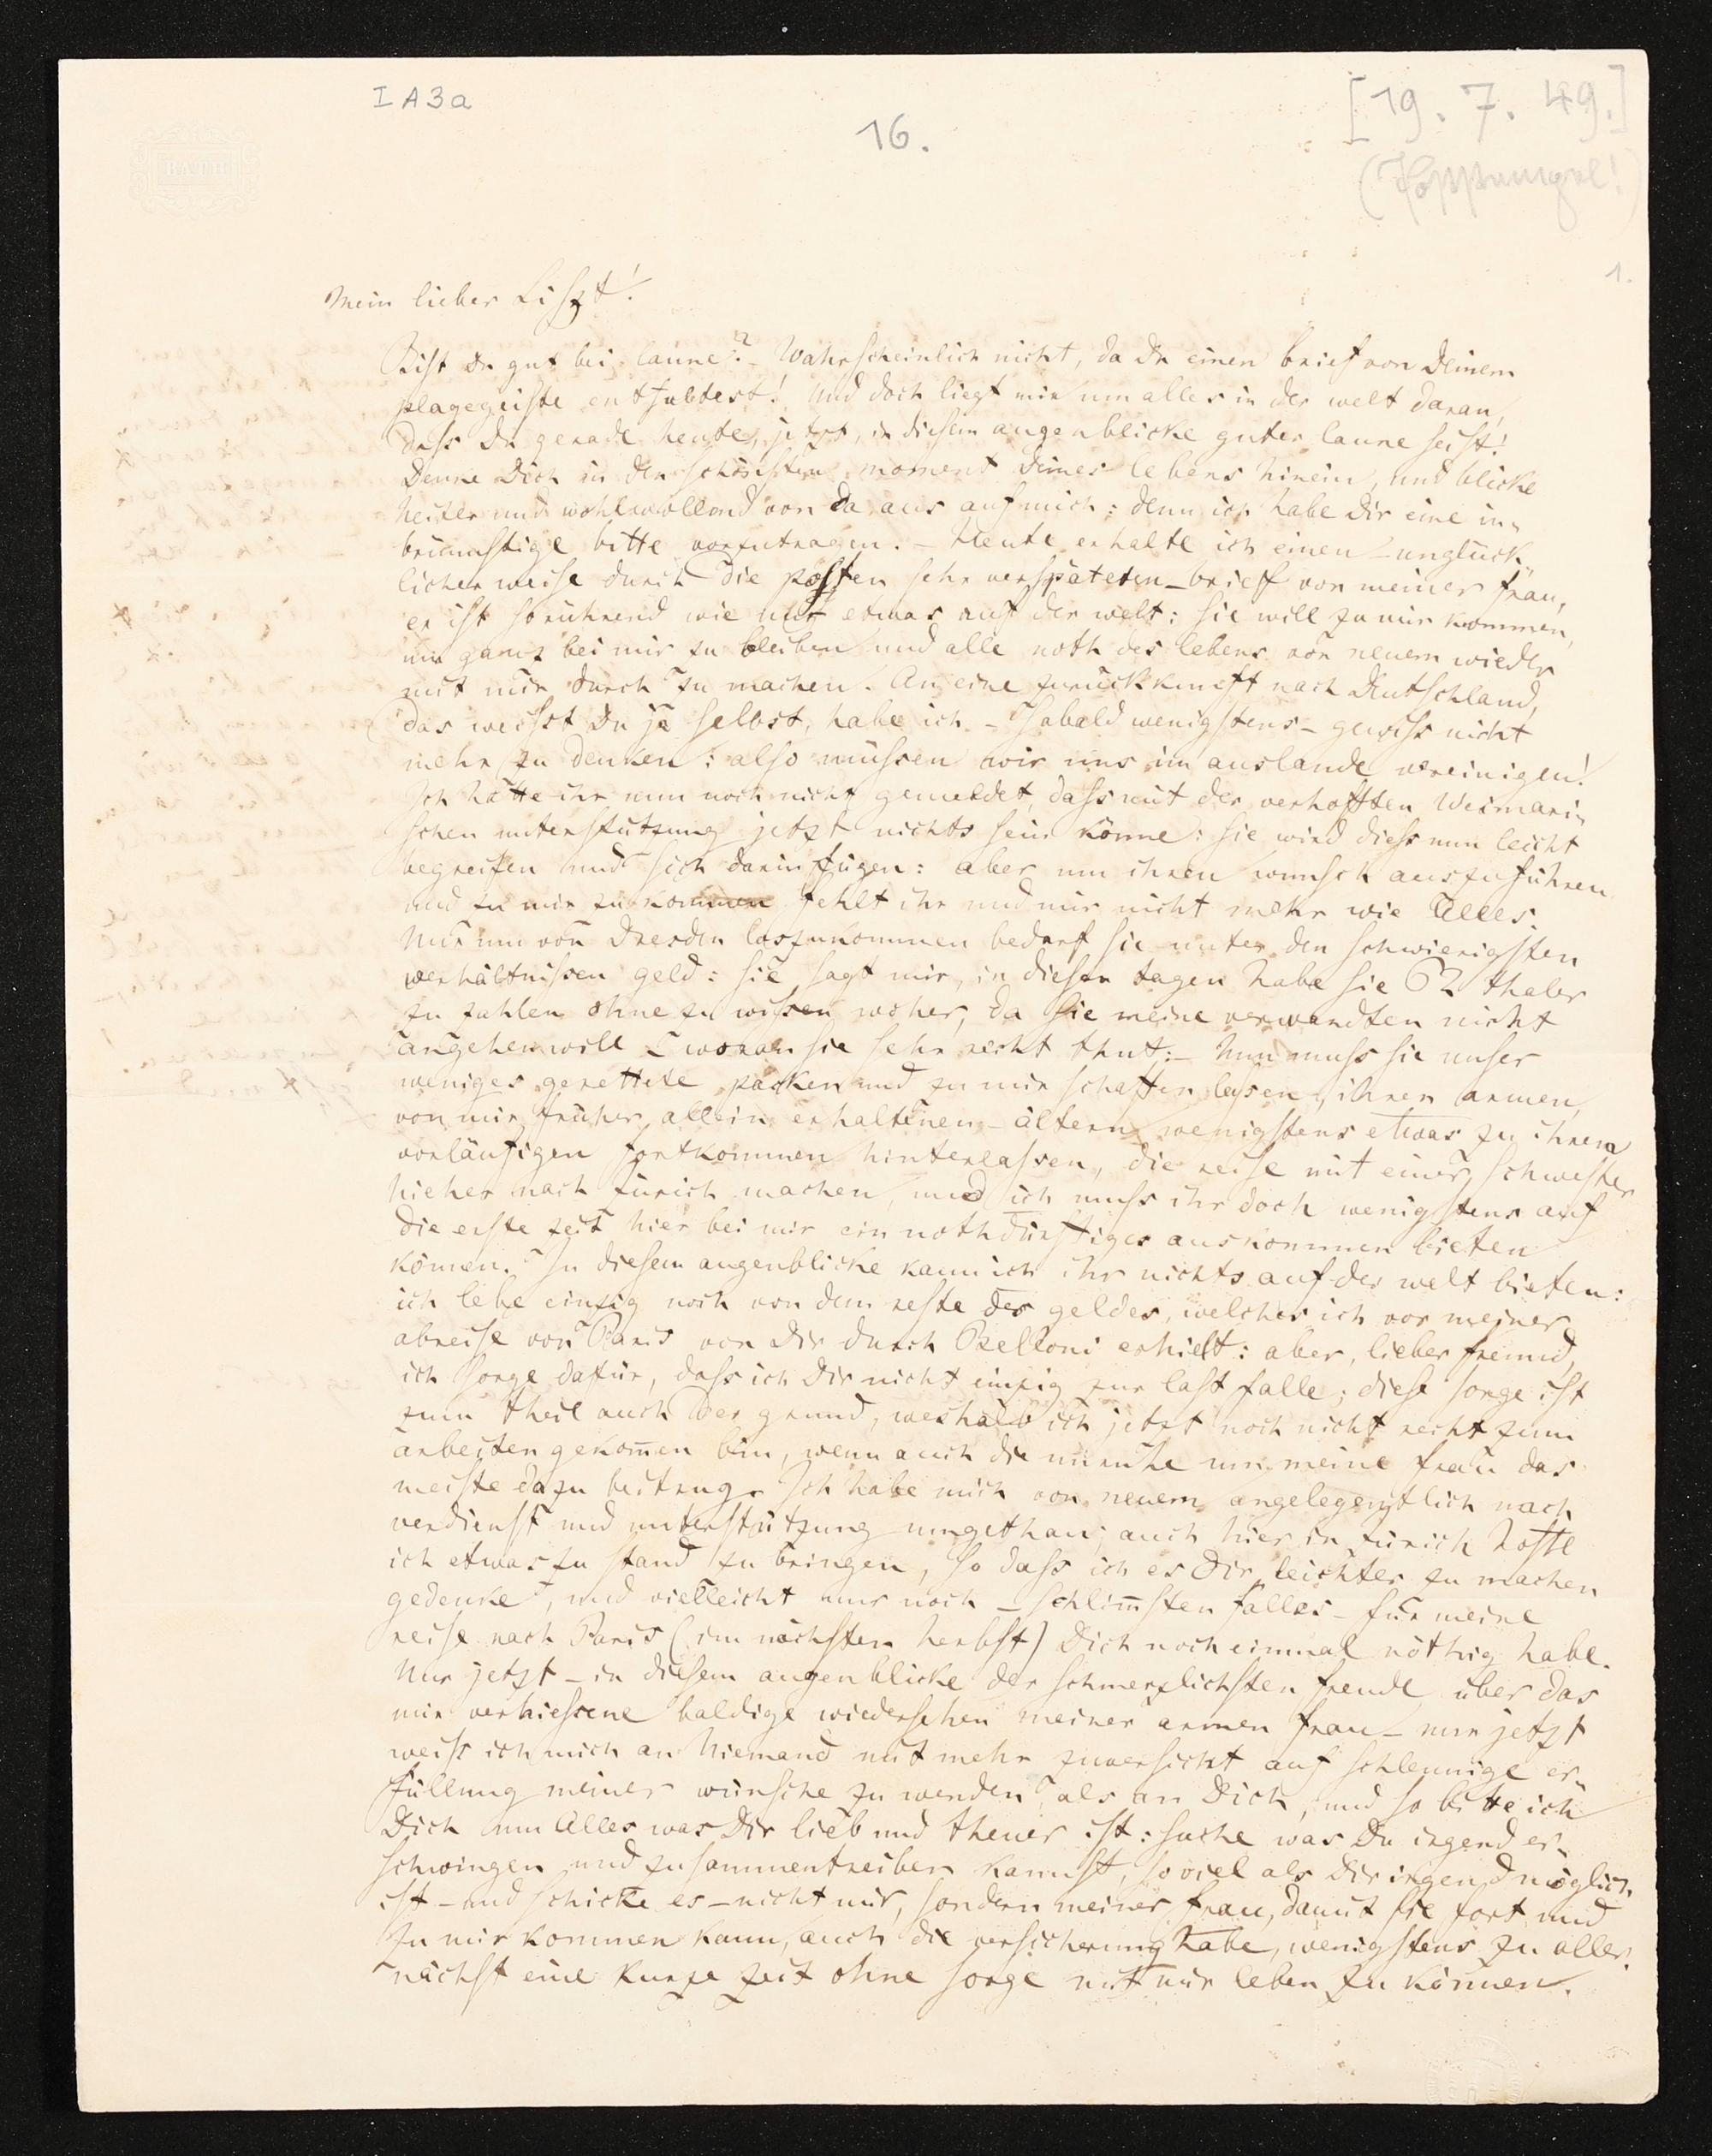 I A 3 a
16.
[19. 7. 49.]
1.
Mein lieber Liszt!
Bist Du gut bei laune? – Wahrscheinlich nicht, da Du einen brief von Deinem
plagegeiste enthältest! Und doch liegt mir um alles in der welt daran,
dass Du gerade heute, jetzt, in diesem augenblicke guter laune seist!
Denke Dich in den schönsten moment Deines lebens hinein, und blicke
heiter und wohlwollend von da aus auf mich: denn ich habe Dir eine in-
brünstige bitte vorzutragen. – Heute erhalte ich einen – unglück-
licher weise durch die posten sehr verspäteten – brief von meiner frau,
er ist so rührend wie nur etwas auf der welt: sie will zu mir kommen,
um ganz bei mir zu bleiben und alle noth des lebens von neuem wieder
mit mir durch zu machen. An eine zurückkunft nach Deutschland,
das weisst Du ja selbst, habe ich – sobald wenigstens – gewiss nicht
mehr zu denken: also müssen wir uns im auslande vereinigen!
Ich hatte ihr nun noch nicht gemeldet, dass mit der verhofften Weimari-
schen unterstützung jetzt nichts sein könne: sie wird diess nun leicht
begreifen und sich darin fügen: aber um ihren wunsch auszuführen
und zu mir zu kommen fehlt ihr und mir nicht mehr wie Alles.
Nur um von Dresden loszukommen bedarf sie unter den schwierigsten
verhältnissen geld: sie sagt mir, in diesen tagen habe sie 62 thaler
zu zahlen ohne zu wissen woher, da sie meine verwandten nicht
angehen will – woran sie sehr recht thut: – Nun muss sie unser
weniges gerettete packen und zu mir schaffen lassen, ihren armen,
von mir früher allein erhaltenen – ältern wenigstens etwas zu ihrem
vorläufigen fortkommen hinterlassen, die reise mit einer schwester
hieher nach Zürich machen, und ich muss ihr doch wenigstens auf
die erste zeit hier bei mir ein nothdürftiges auskommen bieten
können. In diesem augenblicke kann ich ihr nichts auf der welt bieten:
ich lebe einzig noch von dem reste des geldes, welches ich vor meiner
abreise von Paris von Dir durch Belloni erhielt: aber, lieber freund,
ich sorge dafür, dass ich Dir nicht einzig zur last falle; diese sorge ist
zum theil auch der grund, weshalb ich jetzt noch nicht recht zum
arbeiten gekom̅en bin, wenn auch die unruhe um meine frau das
meiste dazu beitrug. Ich habe mich von neuem angelegentlich nach
verdienst und unterstützung umgethan; auch hier in Zürich hoffe
ich etwas zu stand zu bringen, so dass ich es Dir leichter zu machen
gedenke, und vielleicht nur noch – schlim̅sten falles – für meine
reise nach Paris (im nächsten herbst) Dich noch einmal nöthig habe.
Nur jetzt – in diesem augenblicke der schmerzlichsten freude über das
mir verhiessene baldige wiedersehen meiner armen frau – nur jetzt
weiss ich mich an Niemand mit mehr zuversicht auf schleunige er-
füllung meiner wünsche zu wenden, als an Dich, und so bitte ich
Dich um Alles was Dir lieb und theuer ist: suche was Du irgend er-
schwingen und zusammentreiben kannst, soviel als Dir irgend möglich
ist – und schicke es – nicht mir, sondern meiner frau, damit sie fort und
zu mir kommen kann, auch die versicherung habe, wenigstens zu aller-
nächst eine kurze zeit ohne sorge mit mir leben zu können.